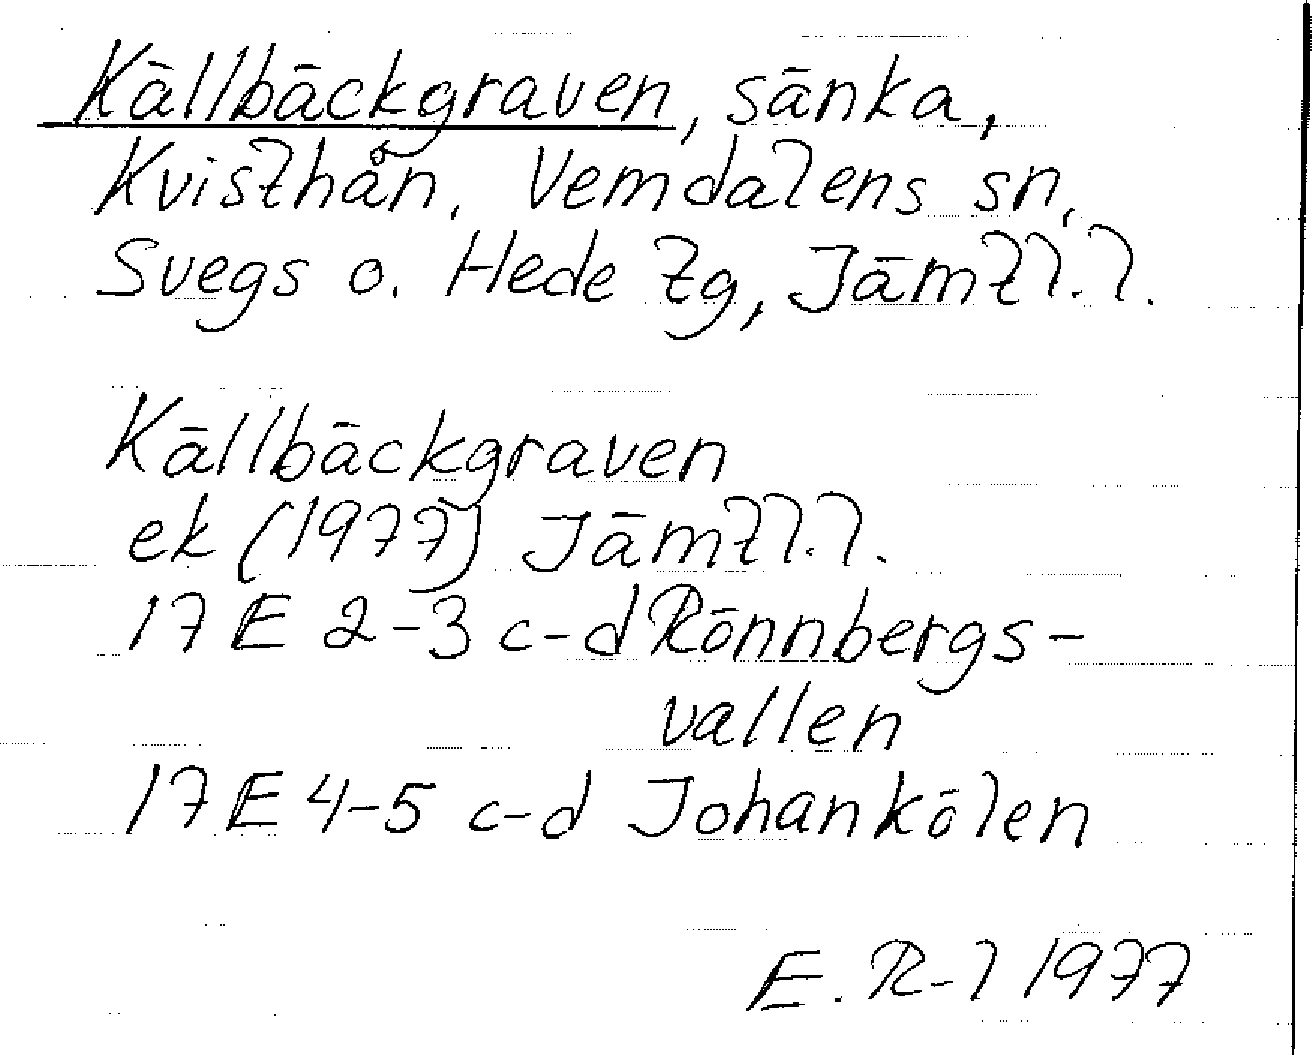 Källbäckgraven, sänka,
Kvisthån, Vemdalens sn,
Svegs o. Hede tg, Jämtl.l.
Källbäckgraven
ek (1977) Jämtl.l.
17 E 2-3 c-d Rönnbergs-
vallen
17 E 4-5 c-d Johankölen
E. R-l 1977